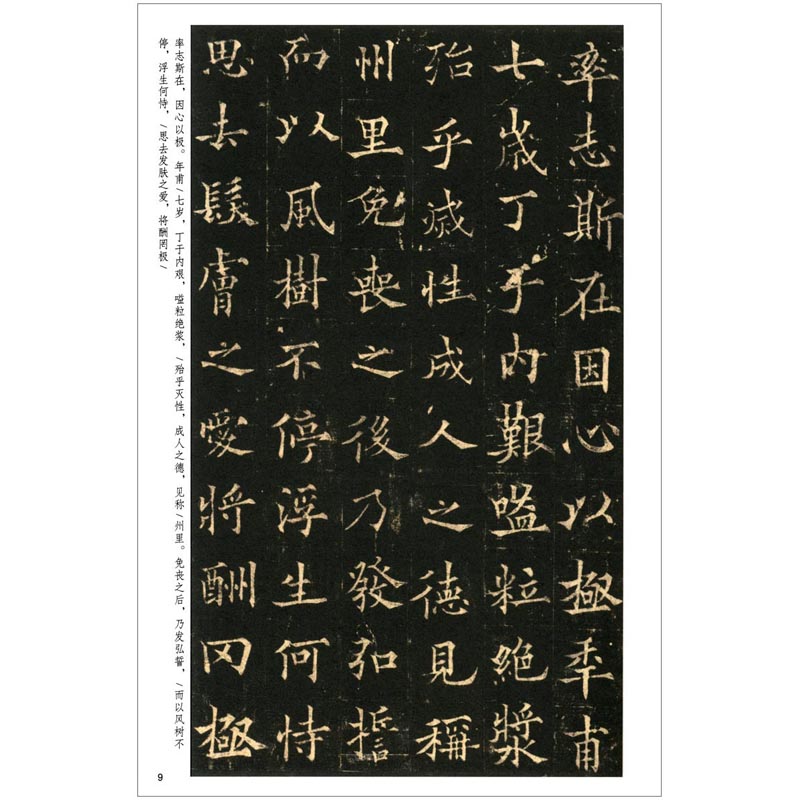 率志斯在因心以極年甫
七歲丁于内艱嗑粒絶漿
殆乎滅性成人之德見稱
州里免喪之後乃發弘誓
而以風樹不停浮生何恃
思去髮膚之愛將酬罔極
率志斯在，因心以极。年甫/七岁，丁于内艰，嗑粒绝浆，/殆乎灭性，成人之德，见称/州里。免丧之后，乃发弘誓，/而以风树不
停，浮生何恃，/思去发肤之爱，将酬罔极/
9